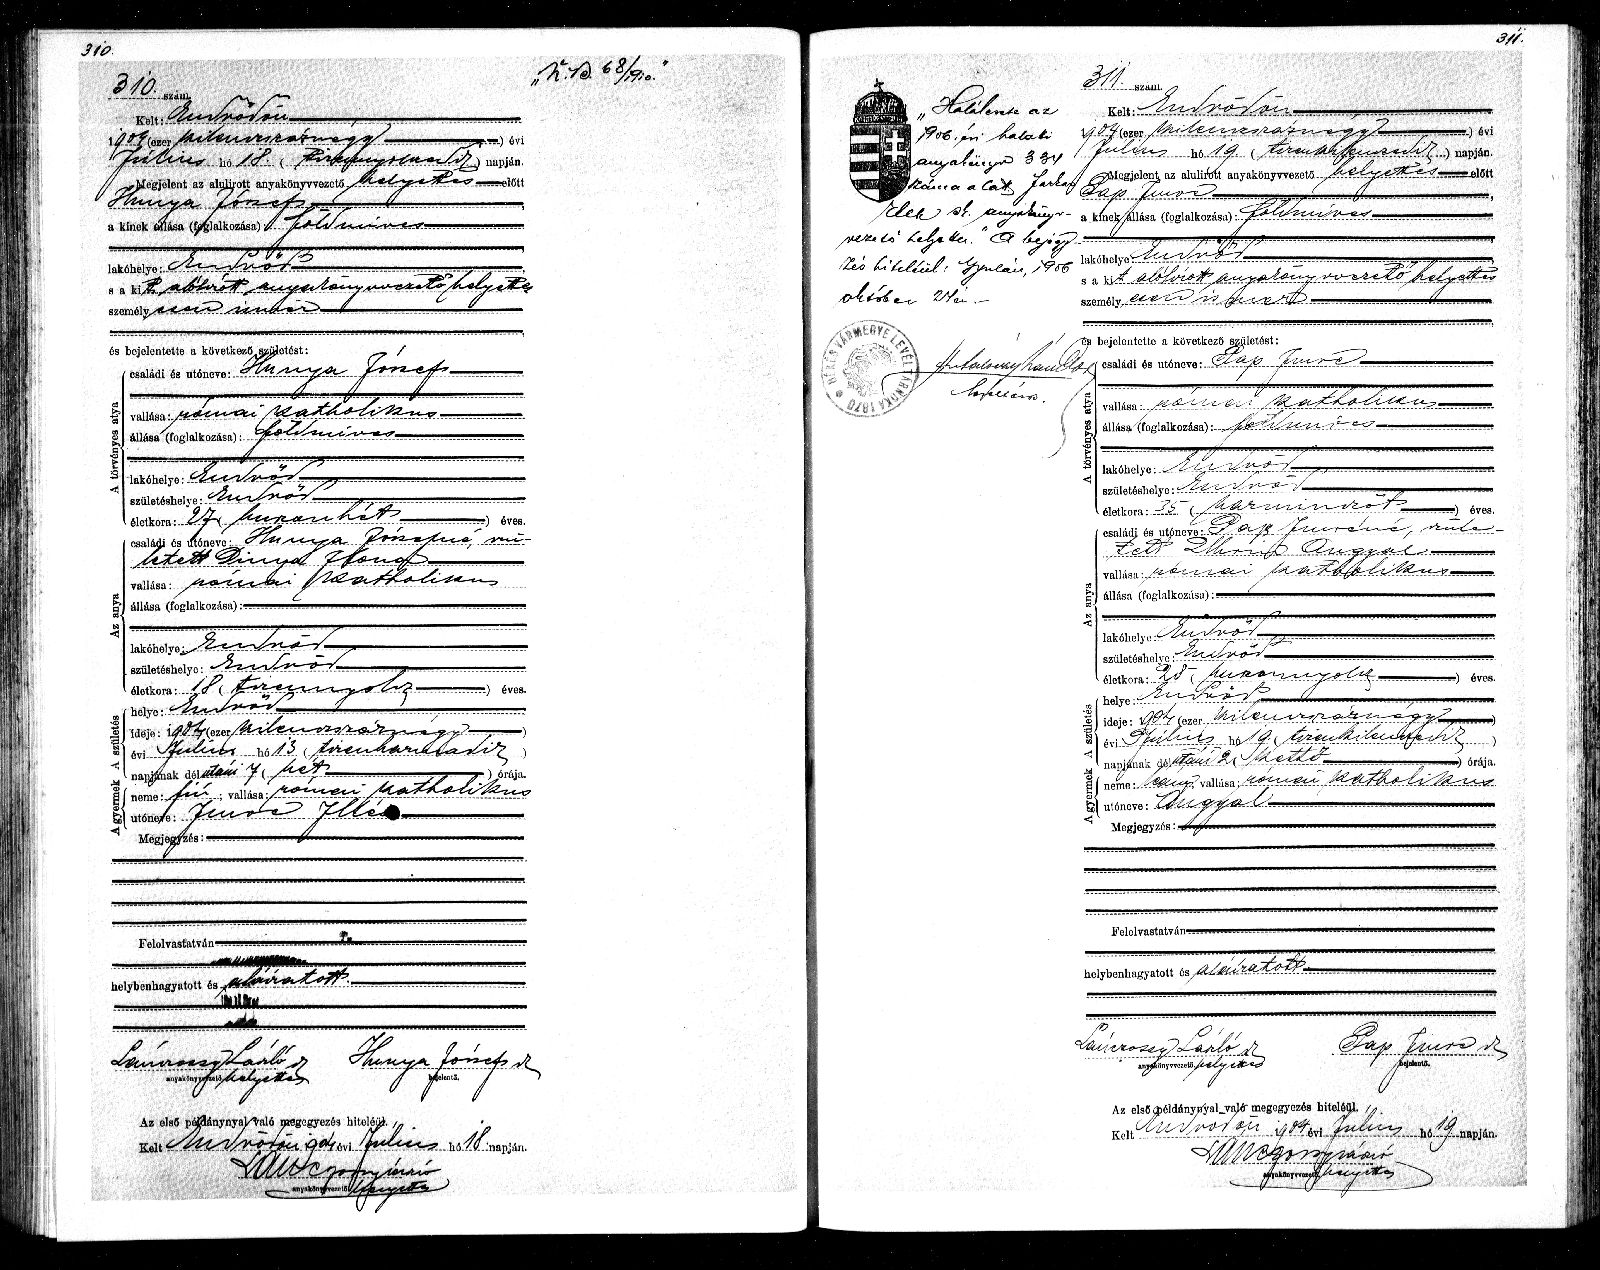 310.
310. szám.
„K. B. 68/910."
Kelt: Endrődön
1904 (ezer kilencszáznégy) évi
Július hó 18. (tizennyolcadik) napján.
Megjelent az alulirott anyakönyvvezető helyettes előtt
Hunya József
a kinek állása (foglalkozása): földmíves
lakóhelye: Endrőd
s a kit alólírott anyakönyvvezető helyettes
személyesen ismer
és bejelentette a következő születést:
A törvényes atya
családi és utóneve: Hunya József
vallása: római katholikus
állása (foglalkozása): földmíves
lakóhelye: Endrőd
születéshelye: Endrőd
életkora: 27 (huszonhét) éves.
Az anya
családi és utóneve: Hunya Józsefné, szü-
letett Dinya Ilona
vallása: római katholikus
állása (foglalkozása):
lakóhelye: Endrőd
születéshelye: Endrőd
életkora: 18 (tizennyolcz) éves.
A születés
helye: Endrőd
ideje: 1904 (ezer kilencszáznégy)
évi Július hó 13 (tizenharmadik)
napjának délutáni 7 (hét) órája.
A gyermek
neme: fiú; vallása: római katholikus
utóneve: Imre Illés
Megjegyzés:
Felolvastatván
helybenhagyatott és aláíratott.
Lánczossy László sk Hunya József sk
anyakönyvvezető helyettes bejelentő.
Az első példánynyal való megegyezés hiteléül.
Kelt Endrődön 904 évi Július hó 18 napján.
Lánczossy László
anyakönyvvezető helyettes
311.
311. szám.
„Halálesete az
1906. évi halotti
anyakönyv 334
száma alatt Farkas
Elek sk. anyakönyv-
vezető helyettes." A bejegy-
zés hiteléül: Gyulán, 1906
október 24én.
BÉKÉSVÁRMEGYE LEVÉLTÁRNOKA 1870
Kelt: Endrődön
1904 (ezer kilencszáznégy) évi
Július hó 19. (tizenkilencedik) napján.
Megjelent az alulirott anyakönyvvezető helyettes előtt
Pap Imre
a kinek állása (foglalkozása): földmíves
lakóhelye: Endrőd
s a kit alólírott anyakönyvvezető helyettes
személyesen ismert
és bejelentette a következő születést:
A törvényes atya
családi és utóneve: Pap Imre
vallása: római katholikus
állása (foglalkozása): földmíves
lakóhelye: Endrőd
születéshelye: Endrőd
életkora: 35 (harminczöt) éves.
Az anya
családi és utóneve: Pap Imréné, szüle-
tett Angyal
vallása: római katholikus
állása (foglalkozása):
lakóhelye: Endrőd
születéshelye: Endrőd
életkora: 28 (huszonnyolcz) éves.
A születés
helye: Endrőd
ideje: 1904 (ezer kilencszáznégy)
évi Július hó 19 (tizenkilencedik)
napjának délutáni 2 (kettő) órája.
A gyermek
neme: leány; vallása: római katholikus
utóneve: Angyal
Megjegyzés:
Felolvastatván
helybenhagyatott és aláíratott
Lánczossy László sk Pap Imre sk
anyakönyvvezető helyettes bejelentő.
Az első példánynyal való megegyezés hiteléül.
Kelt Endrődön 904 évi Július hó 19 napján.
Lánczossy László
anyakönyvvezető helyettes